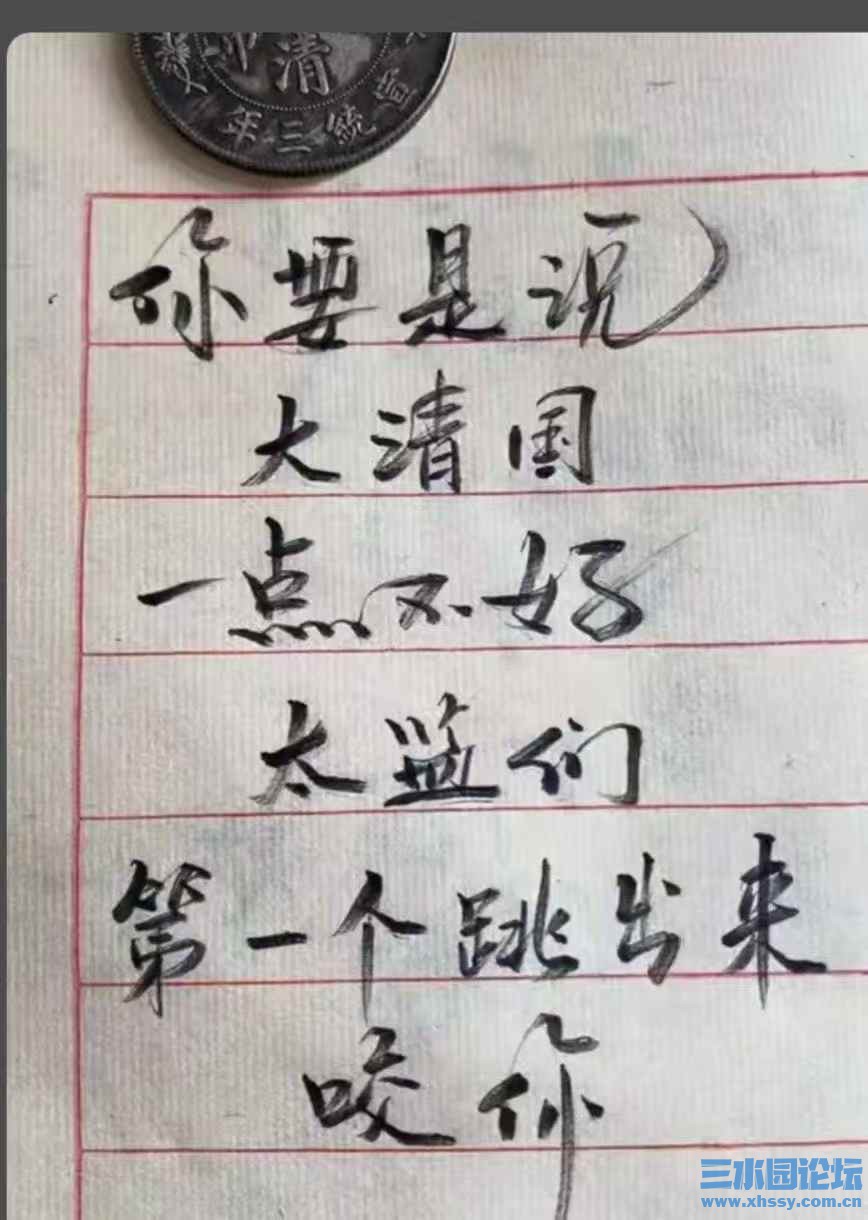 清
宣統三年
你要是说
大清国
一点不好
太监们
第一个跳出来
咬你
三水园论坛
www.xhssy.com.cn